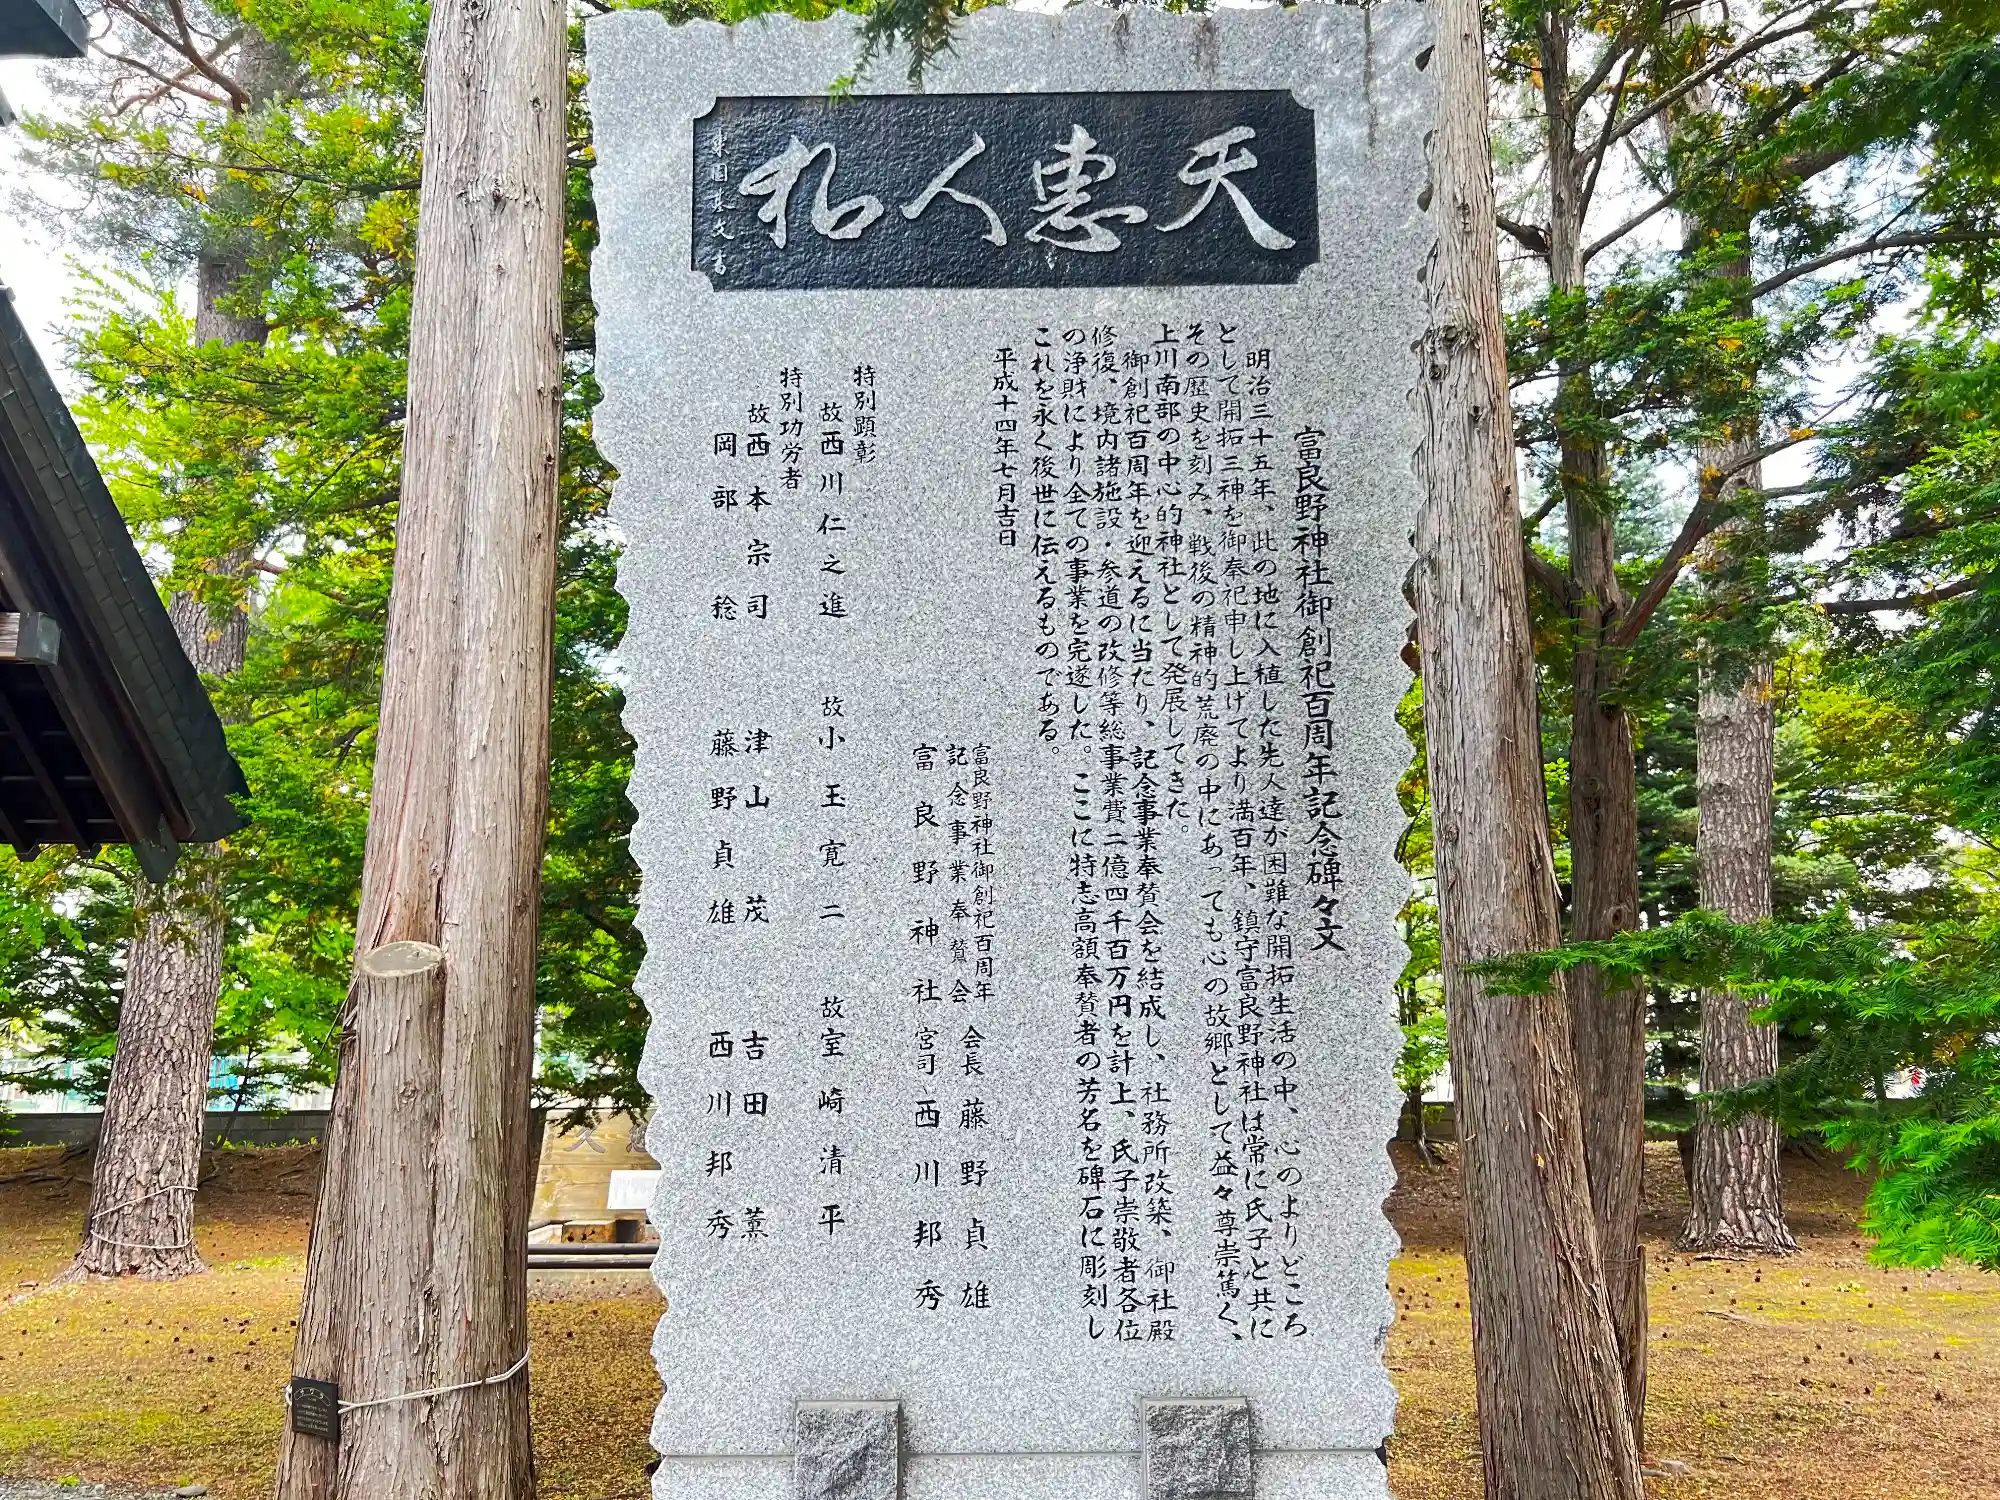 天恵人和
富良野神社御創祀百周年記念碑々文
明治三十五年、此の地に入植した先人達が困難な開拓生活の中、心のよりどころ
として開拓三神を御奉祀申し上げてより満百年、鎮守富良野神社は常に氏子と共に
その歴史を刻み、戦後の精神的荒廃の中にあっても心の故郷として益々尊崇篤く、
上川南部の中心的神社として発展してきた。
御創祀百周年を迎えるに当たり、記念事業奉賛会を結成し、社務所改築、御社殿
修復、境内諸施設・参道の改修等総事業費二億四千百万円を計上、氏子崇敬者各位
の浄財により全ての事業を完遂した。ここに特志高額奉賛者の芳名を碑石に彫刻し
これを永く後世に伝えるものである。
平成十四年七月吉日
富良野神社御創祀百周年
記念事業奉賛会 会長 藤野貞雄
富良野神社 宮司 西川邦秀
特別顕彰
故西川仁之進 故小玉寛二 故室崎清平
特別功労者
故西本宗司 津山茂 吉田薫
岡部稔 藤野貞雄 西川邦秀